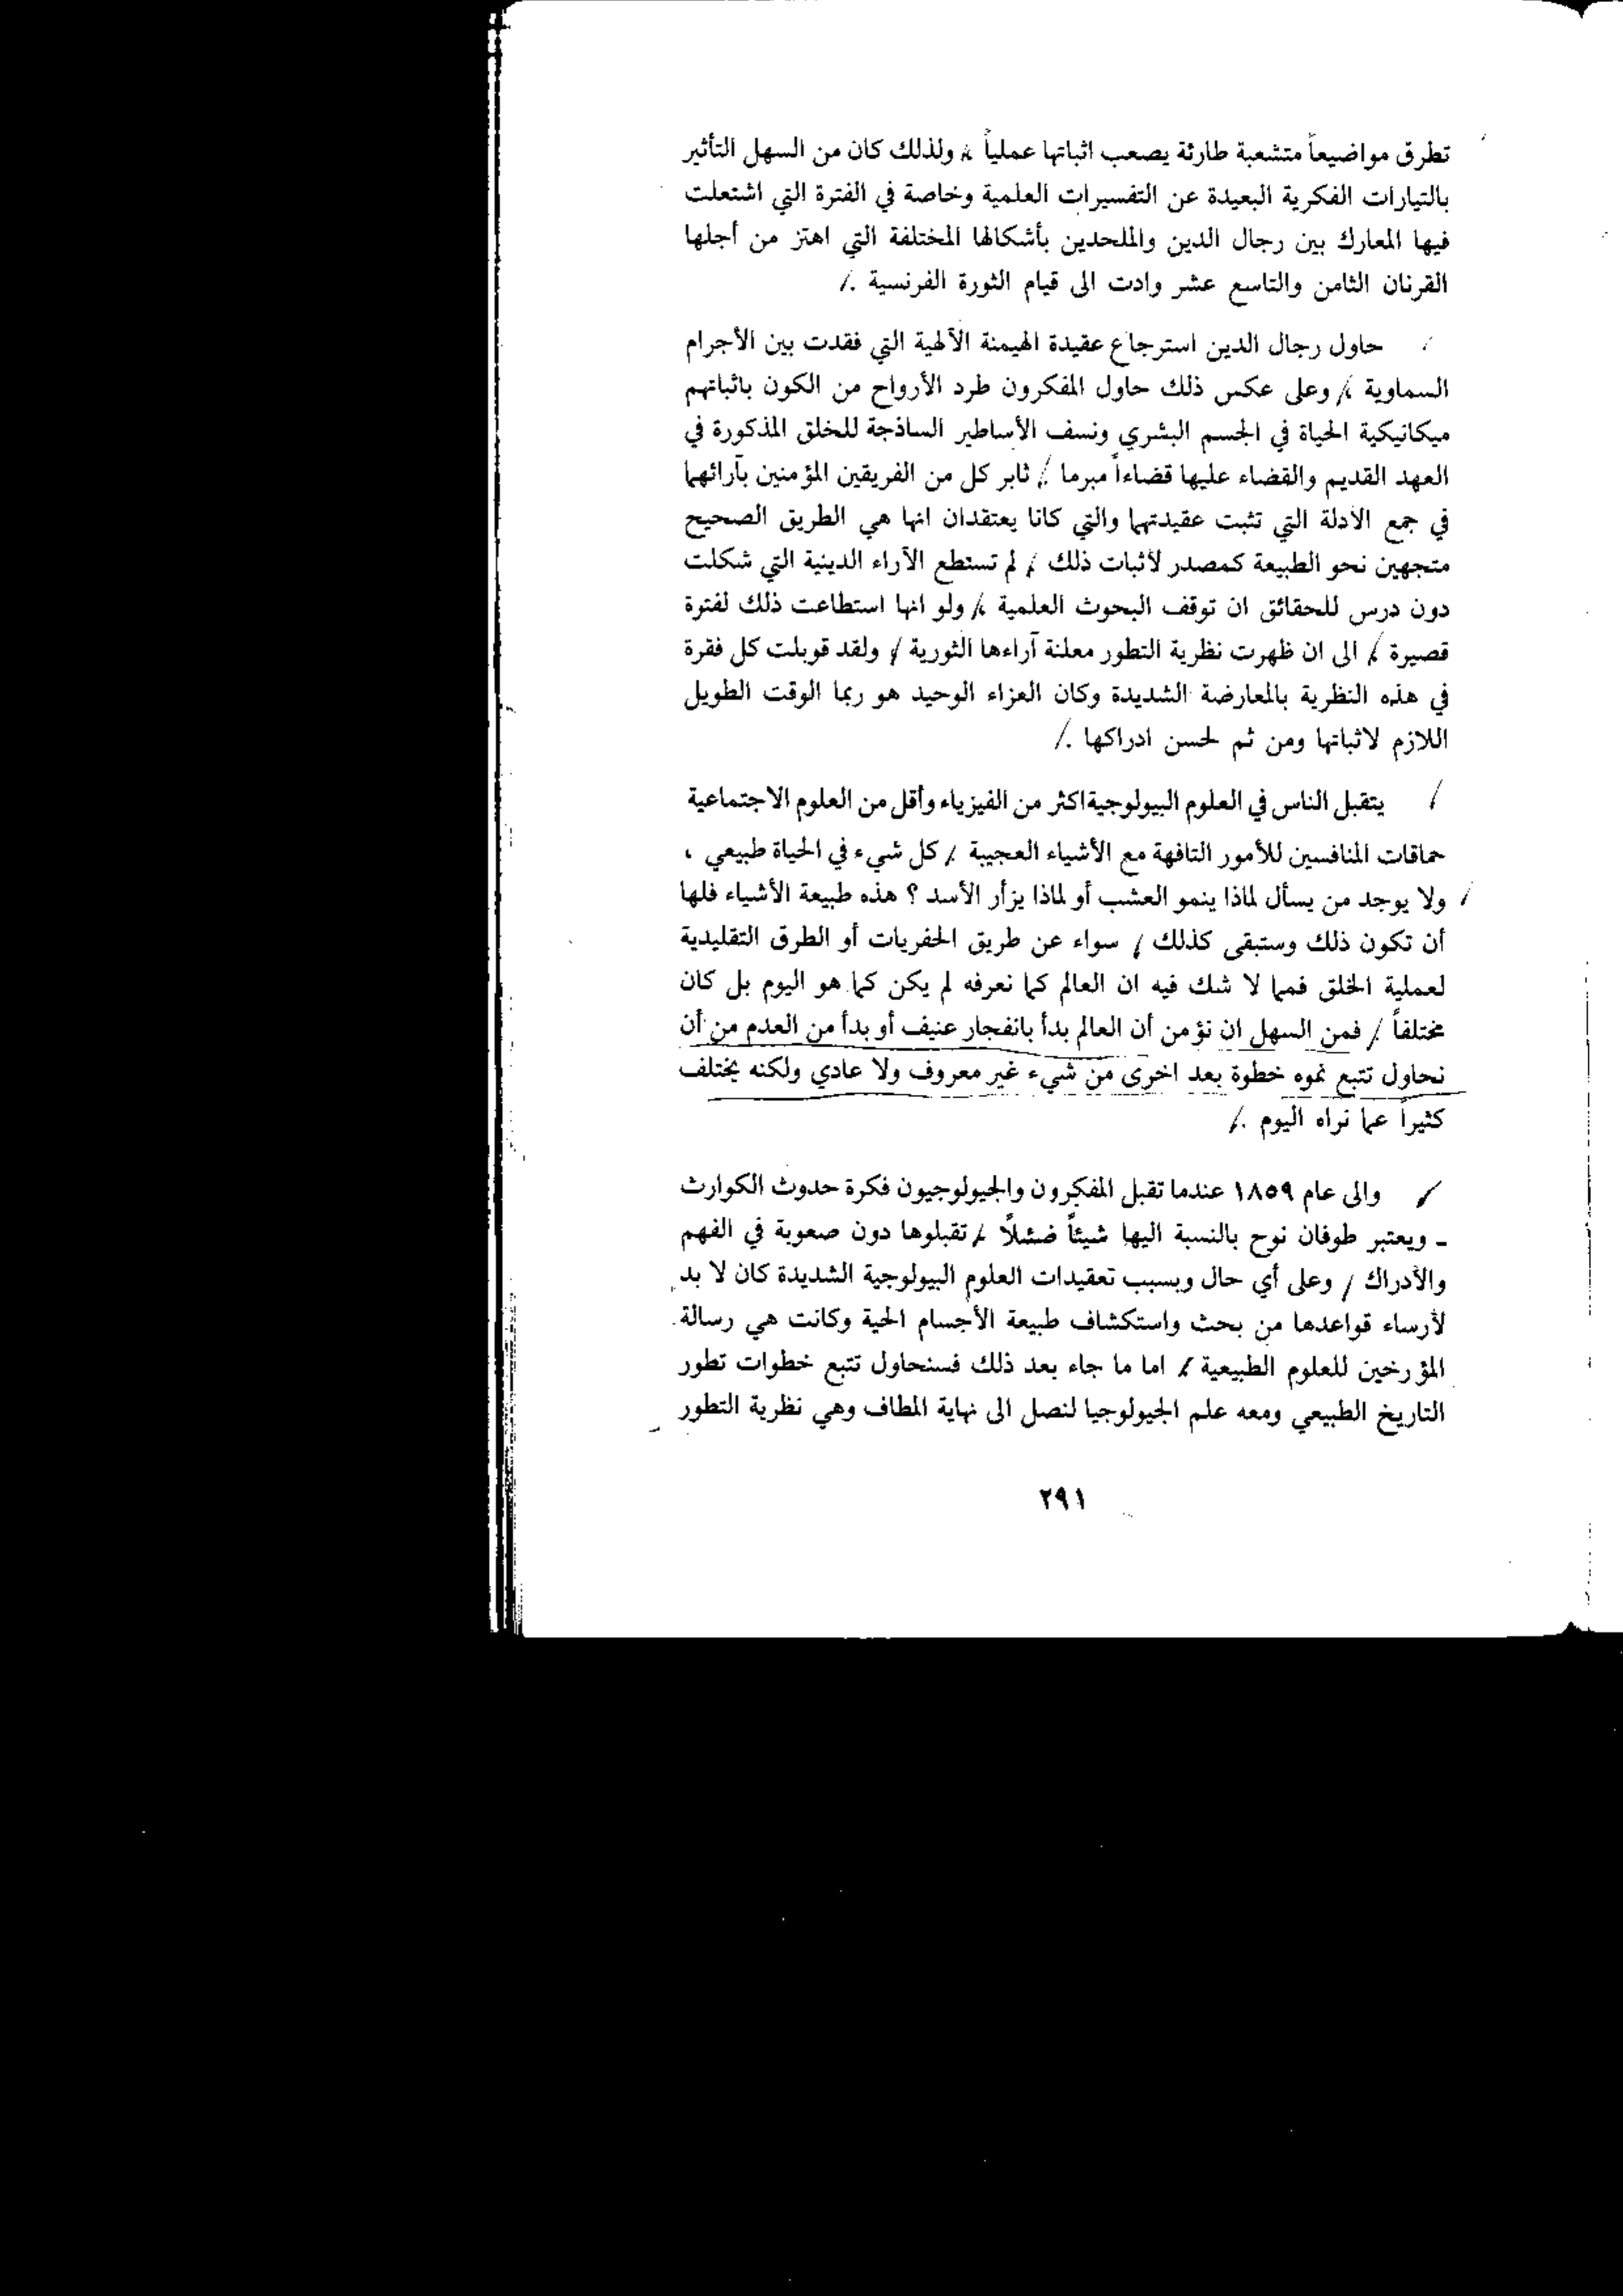 تطرق مواضيعاً متشعبة طارئة يصعب اثباتها عملياً ، ولذلك كان من السهل التأثير
بالتيارات الفكرية البعيدة عن التفسيرات العلمية وخاصة في الفترة التي اشتعلت
فيها المعارك بين رجال الدين والملحدين بأشكالها المختلفة التي اهتز من أجلها
القرنان الثامن والتاسع عشر وادت الى قيام الثورة الفرنسية .
حاول رجال الدين استرجاع عقيدة الهيمنة الآلهية التي فقدت بين الأجرام
السماوية ، وعلى عكس ذلك حاول المفكرون طرد الأرواح من الكون باثباتهم
ميكانيكية الحياة في الجسم البشري ونسف الأساطير الساذجة للخلق المذكورة في
العهد القديم والقضاء عليها قضاءاً مبرما . ثابر كل من الفريقين المؤمنين بآرائهما
في جمع الأدلة التي تثبت عقيدتهما والتي كانا يعتقدان انها هي الطريق الصحيح
متجهين نحو الطبيعة كمصدر لأثبات ذلك . لم تستطع الآراء الدينية التي شكلت
دون درس للحقائق ان توقف البحوث العلمية ، ولو انها استطاعت ذلك لفترة
قصيرة ، الى ان ظهرت نظرية التطور معلنة آراءها الثورية ، ولقد قوبلت كل فقرة
في هذه النظرية بالمعارضة الشديدة وكان العزاء الوحيد هو ربما الوقت الطويل
اللازم لاثباتها ومن ثم لحسن ادراكها .
يتقبل الناس في العلوم البيولوجية اكثر من الفيزياء وأقل من العلوم الاجتماعية
حماقات المنافسين للأمور التافهة مع الأشياء العجيبة . كل شيء في الحياة طبيعي ،
ولا يوجد من يسأل لماذا ينمو العشب أو لماذا يزأر الأسد ؟ هذه طبيعة الأشياء فلها
أن تكون ذلك وستبقى كذلك ، سواء عن طريق الحفريات أو الطرق التقليدية
لعملية الخلق فمما لا شك فيه ان العالم كما نعرفه لم يكن كما هو اليوم بل كان
مختلفاً . فمن السهل ان نؤمن أن العالم بدأ بانفجار عنيف أو بدأ من العدم من أن
نحاول تتبع نموه خطوة بعد اخرى من شيء غير معروف ولا عادي ولكنه يختلف
كثيراً عما نراه اليوم .
والى عام ١٨٥٩ عندما تقبل المفكرون والجيولوجيون فكرة حدوث الكوارث
- ويعتبر طوفان نوح بالنسبة اليها شيئاً ضئلاً ، تقبلوها دون صعوبة في الفهم
والأدراك ، وعلى أي حال وبسبب تعقيدات العلوم البيولوجية الشديدة كان لا بد
لأرساء قواعدها من بحث واستكشاف طبيعة الأجسام الحية وكانت هي رسالة
المؤرخين للعلوم الطبيعية ، اما ما جاء بعد ذلك فسنحاول تتبع خطوات تطور
التاريخ الطبيعي ومعه علم الجيولوجيا لنصل الى نهاية المطاف وهي نظرية التطور
٢٩١